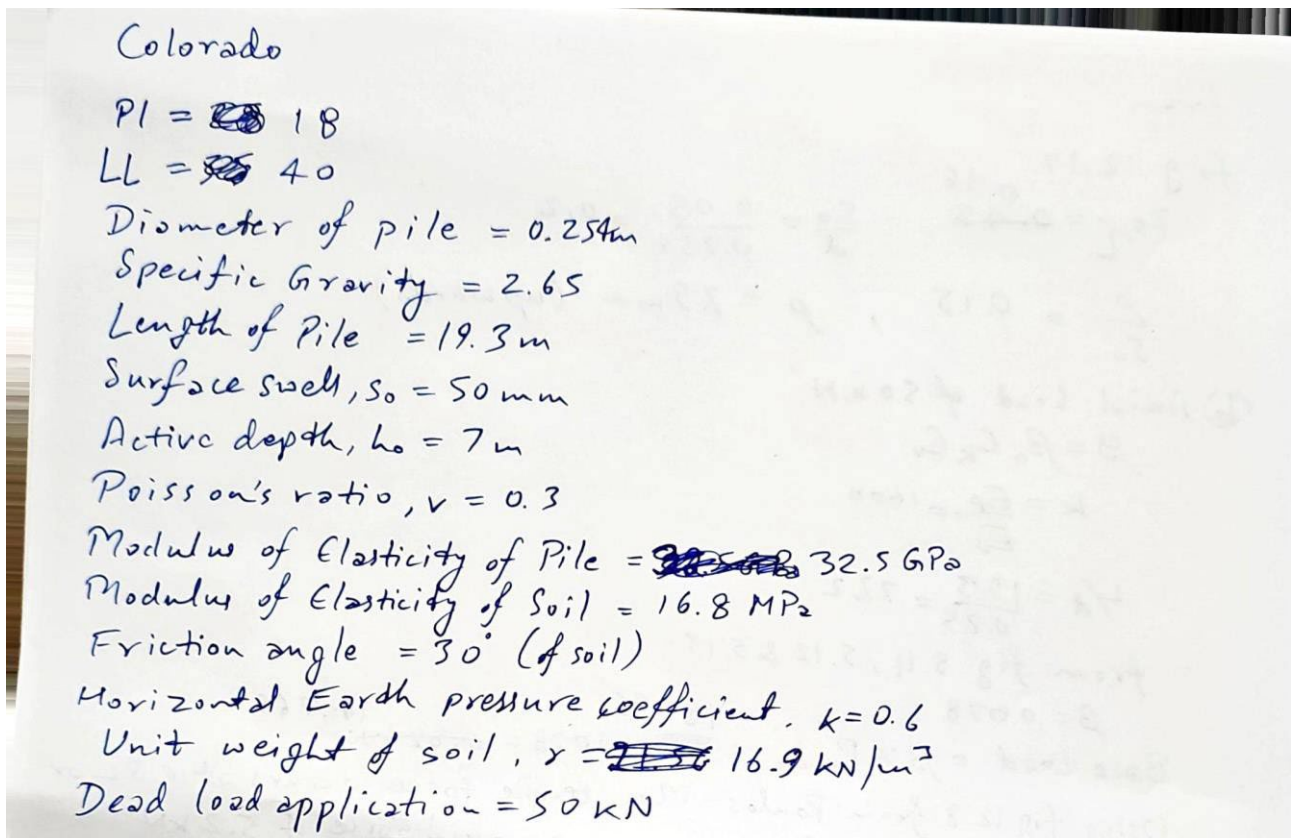 Colorado
PI = 18
LL = 40
Diameter of pile = 0.254m
Specific Gravity = 2.65
Length of Pile = 19.3 m
Surface swell, so = 50 mm
Active depth, ho = 7 m
Poisson's ratio, v = 0.3
Modulus of Elasticity of Pile = 32.5 GPa
Modulus of Elasticity of Soil = 16.8 MPa
Friction angle = 30° (of soil)
Horizontal Earth pressure coefficient, k=0.6
Unit weight of soil, r = 16.9 kN/m³
Dead load application = 50 KN